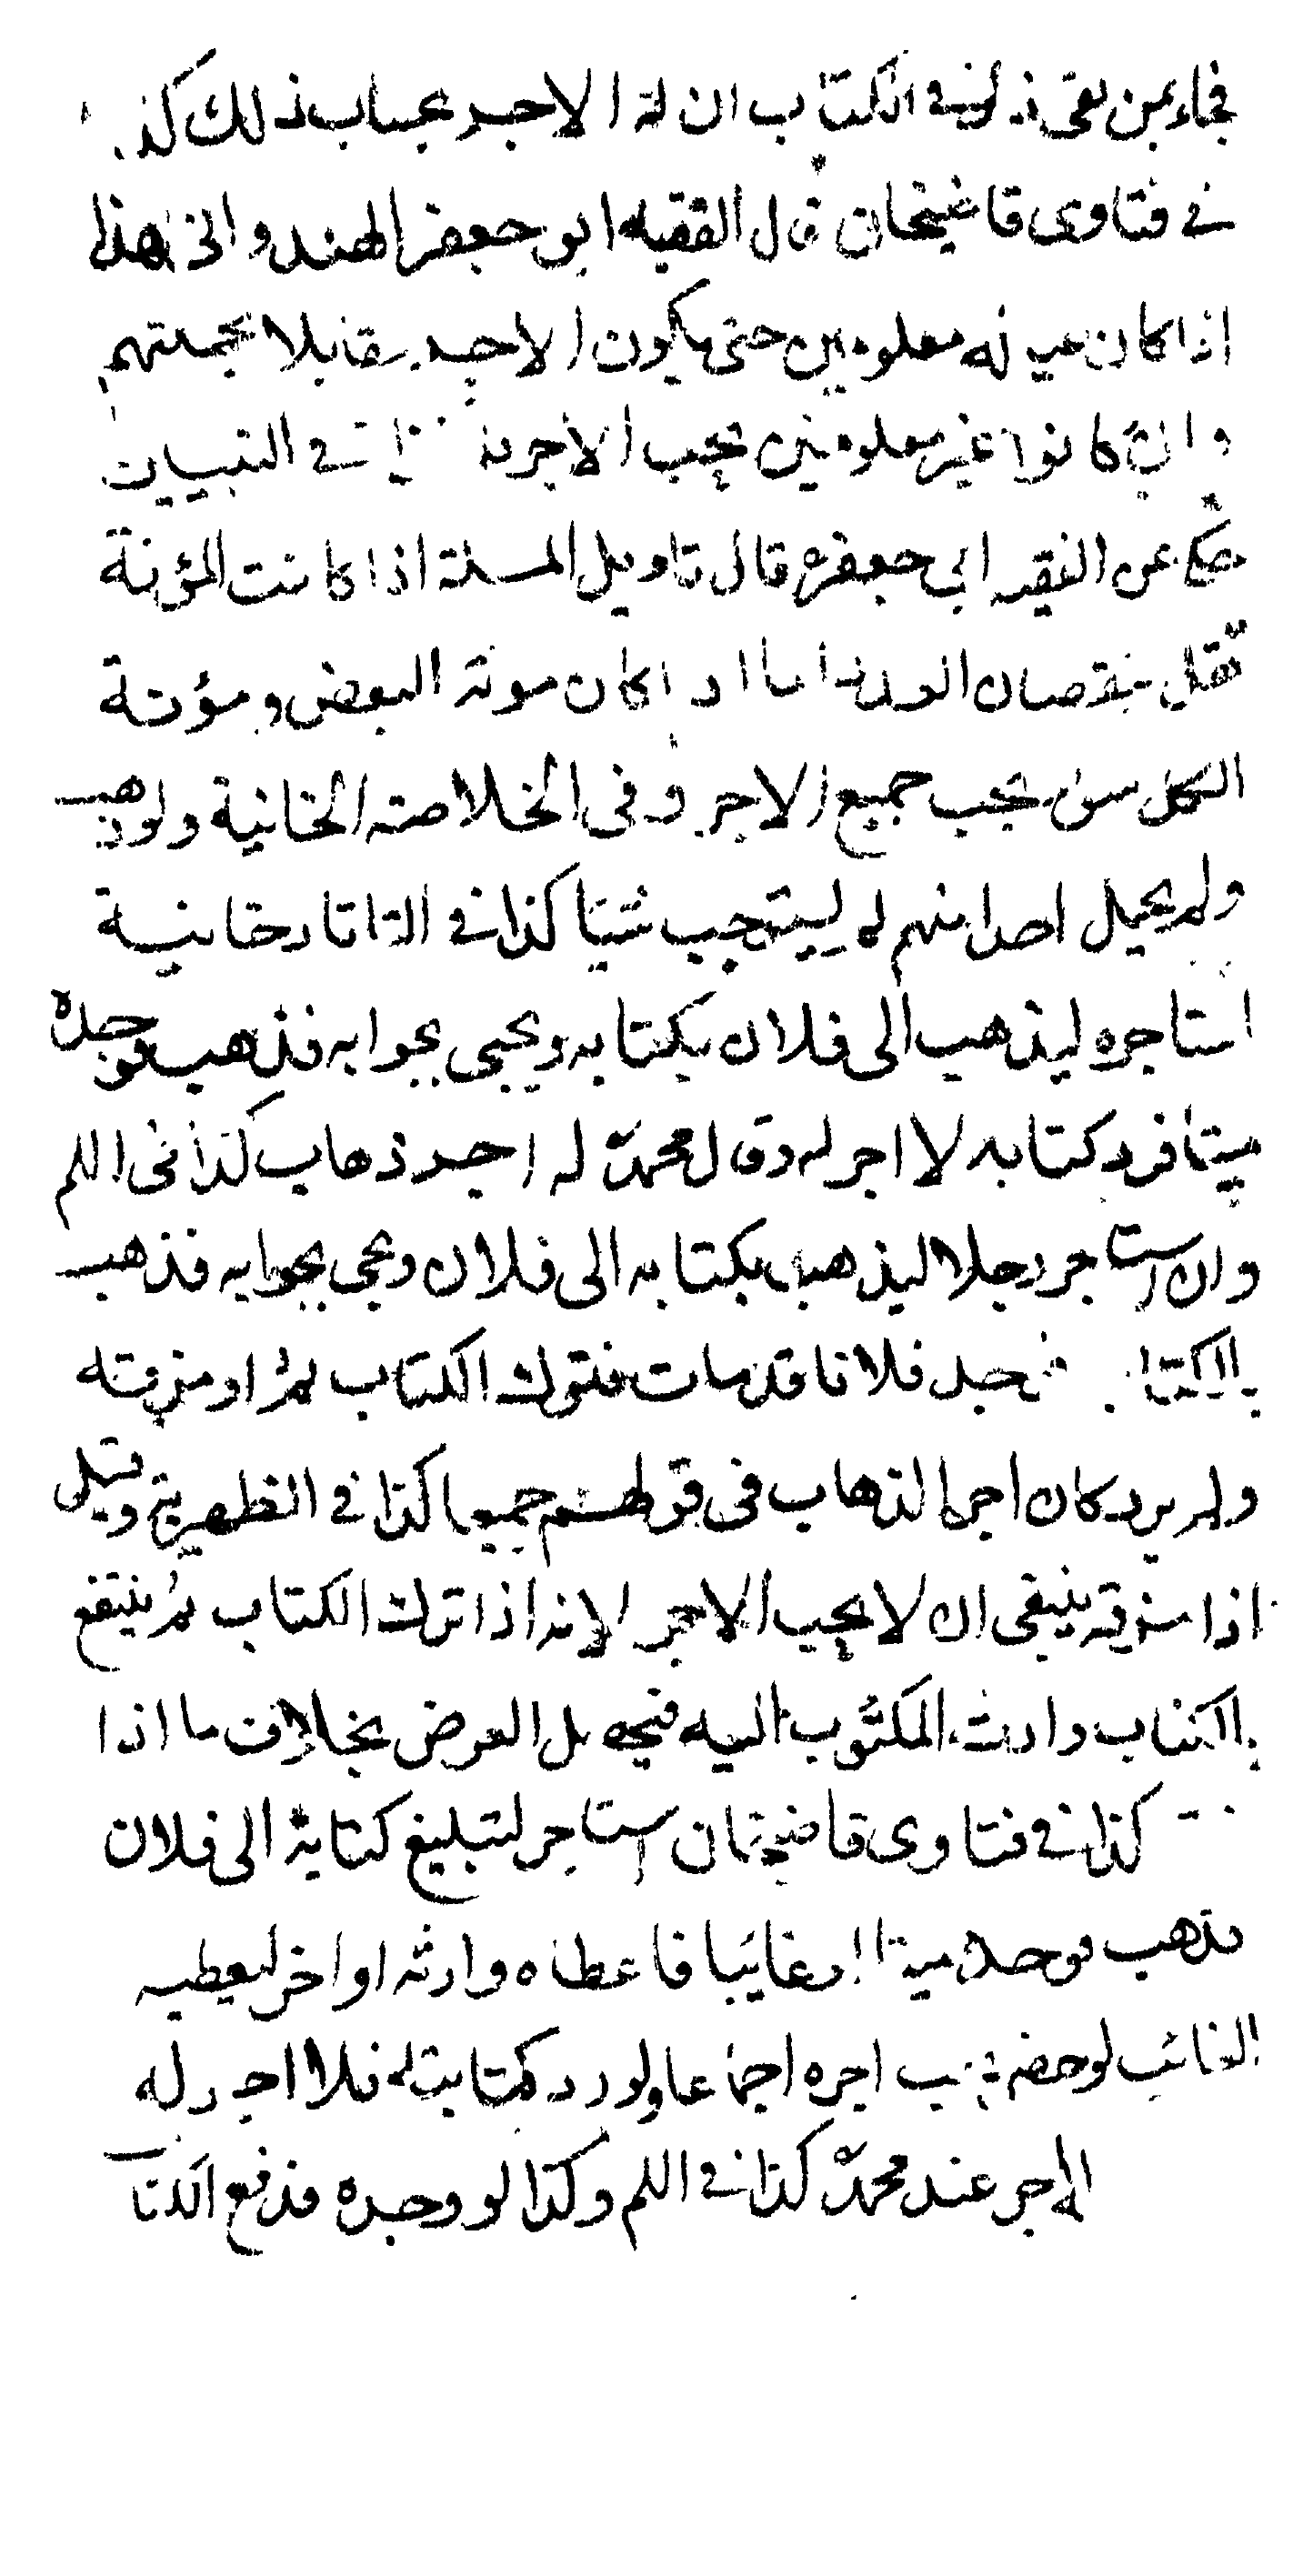 فجاء بمن بقى ذكر فى الكتاب ان له الاجر بحساب ذلك كذا
فى فتاوى قاضيخان قال الفقيه ابو جعفر الهندوانى هذا
اذا كان عياله معلومين حتى يكون الاجر مقابلا بجملتهم
وان كانوا غير معلومين يجب الاجر فى
حكى عن الفقيه ابى جعفر قال تاويل المسئلة اذا كانت المؤنة
تقل بنقصان العدد اما اذا كان مونة البعض ومؤنة
الكل سواء يجب جميع الاجر وفى الخلاصة الخانية ولو ذهب
ولم يحمل احدا منهم لم يستوجب شيئا كذا فى التاتارخانية
استاجره ليذهب الى فلان بكتابه ويجيى بجوابه فذهب فوجده
ميتا فرد كتابه لا اجر له وقال محمد له اجر ذهاب كذا فى اللم
وان استاجر رجلا ليذهب بكتابه الى فلان ويجى بجوابه فذهب
بالكتاب فوجد فلانا قد مات فترك الكتاب ثمة او مزقه
ولم يرد كان اجر الذهاب فى قولهم جميعا كذا فى الظهيرية وقيل
اذا مزقه ينبغى ان لا يجب الاجر لانه اذا ترك الكتاب ثم ينتفع
بالكتاب وارث المكتوب اليه فيحصل الغرض بخلاف ما اذا
كذا فى فتاوى قاضيخان استاجر لتبليغ كتابه الى فلان
فذهب فوجده ميتا او غايبا فاعطاه وارثه او اخر ليعطيه
الغائب لو حضر يجب اجره اجماعا ولو رد كتابته فلا اجر له
الاجر عند محمد كذا فى اللم وكذا لو وجده فدفع الكتاب